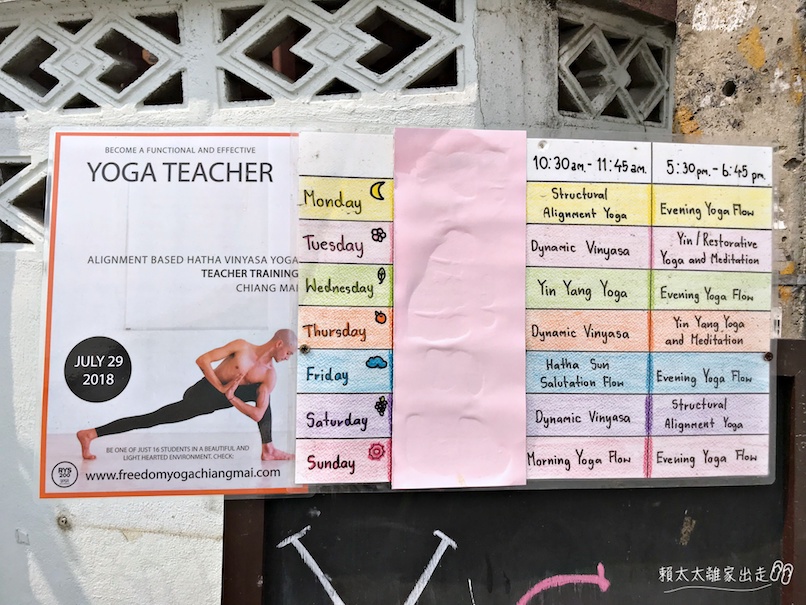 BECOME A FUNCTIONAL AND EFFECTIVE
YOGA TEACHER
ALIGNMENT BASED HATHA VINYASA YOGA
TEACHER TRAINING
CHIANG MAI
JULY 29
2018
BE ONE OF JUST 16 STUDENTS IN A BEAUTIFUL AND
LIGHT HEARTED ENVIRONMENT. CHECK:
RYS
200
www.freedomyogachiangmai.com
10:30am. - 11:45am.
5:30pm. - 6:45pm.
Monday
Structural
Alignment Yoga
Evening Yoga Flow
Tuesday
Dynamic Vinyasa
Yin/Restorative
Yoga and Meditation
Wednesday
Yin Yang Yoga
Evening Yoga Flow
Thursday
Dynamic Vinyasa
Yin Yang Yoga
and Meditation
Friday
Hatha Sun
Salutation Flow
Evening Yoga Flow
Saturday
Dynamic Vinyasa
Structural
Alignment Yoga
Sunday
Morning Yoga Flow
Evening Yoga Flow
賴太太離家出走